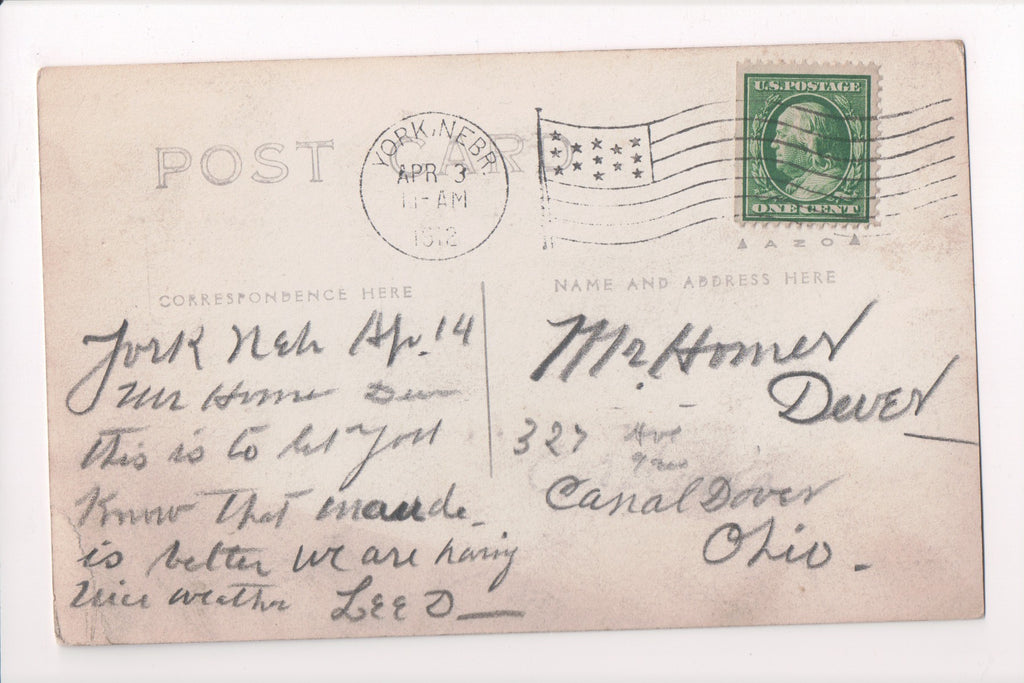 POST CARD
YORK, NEBR.
APR 3
11-AM
1912
U.S. POSTAGE
ONE CENT
AZO
CORRESPONDENCE HERE
NAME AND ADDRESS HERE
York Neb Ap. 14
Mr Home
this is to let You
Know that maude
is better we are having
nice weather Lee D
Mr. Homer
Dever
327 Ave
Canal Dover
Ohio.